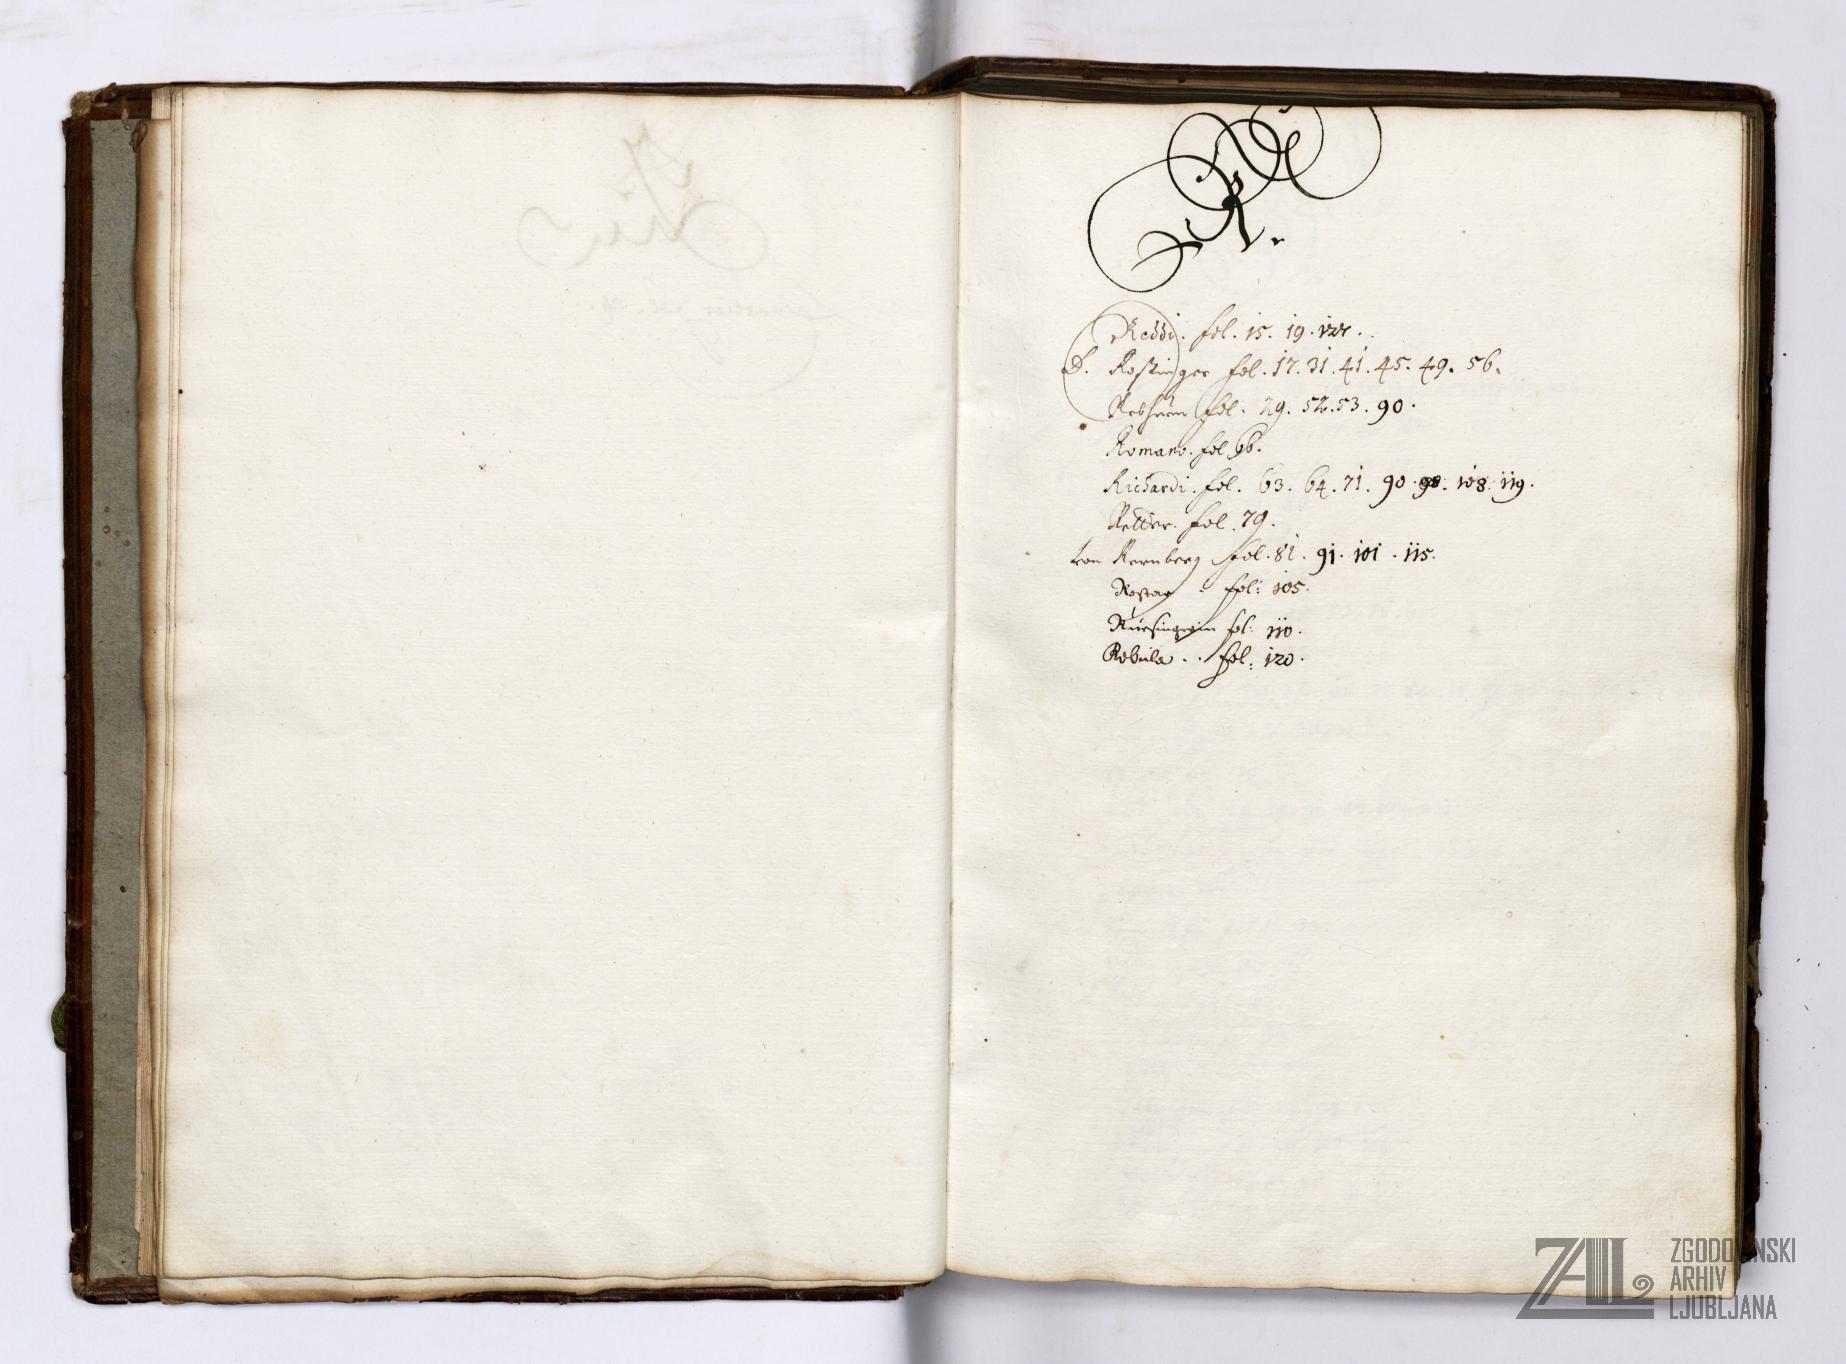 R.
Reddi. fol. 15. 19. 122.
D. Rostinger fol. 17. 31. 41. 45. 49. 56.
fol. 29. 52. 53. 90.
Romano. fol. 66.
Richardi. fol. 63. 64. 71. 90. 98. 108. 119.
Retter. fol. 79.
von Rernberg fol. 81. 91. 101. 115.
Rostag fol: 105.
fol: 110.
Robida .. fol: 120.
ZAL ZGODOVINSKI
ARHIV
LJUBLJANA